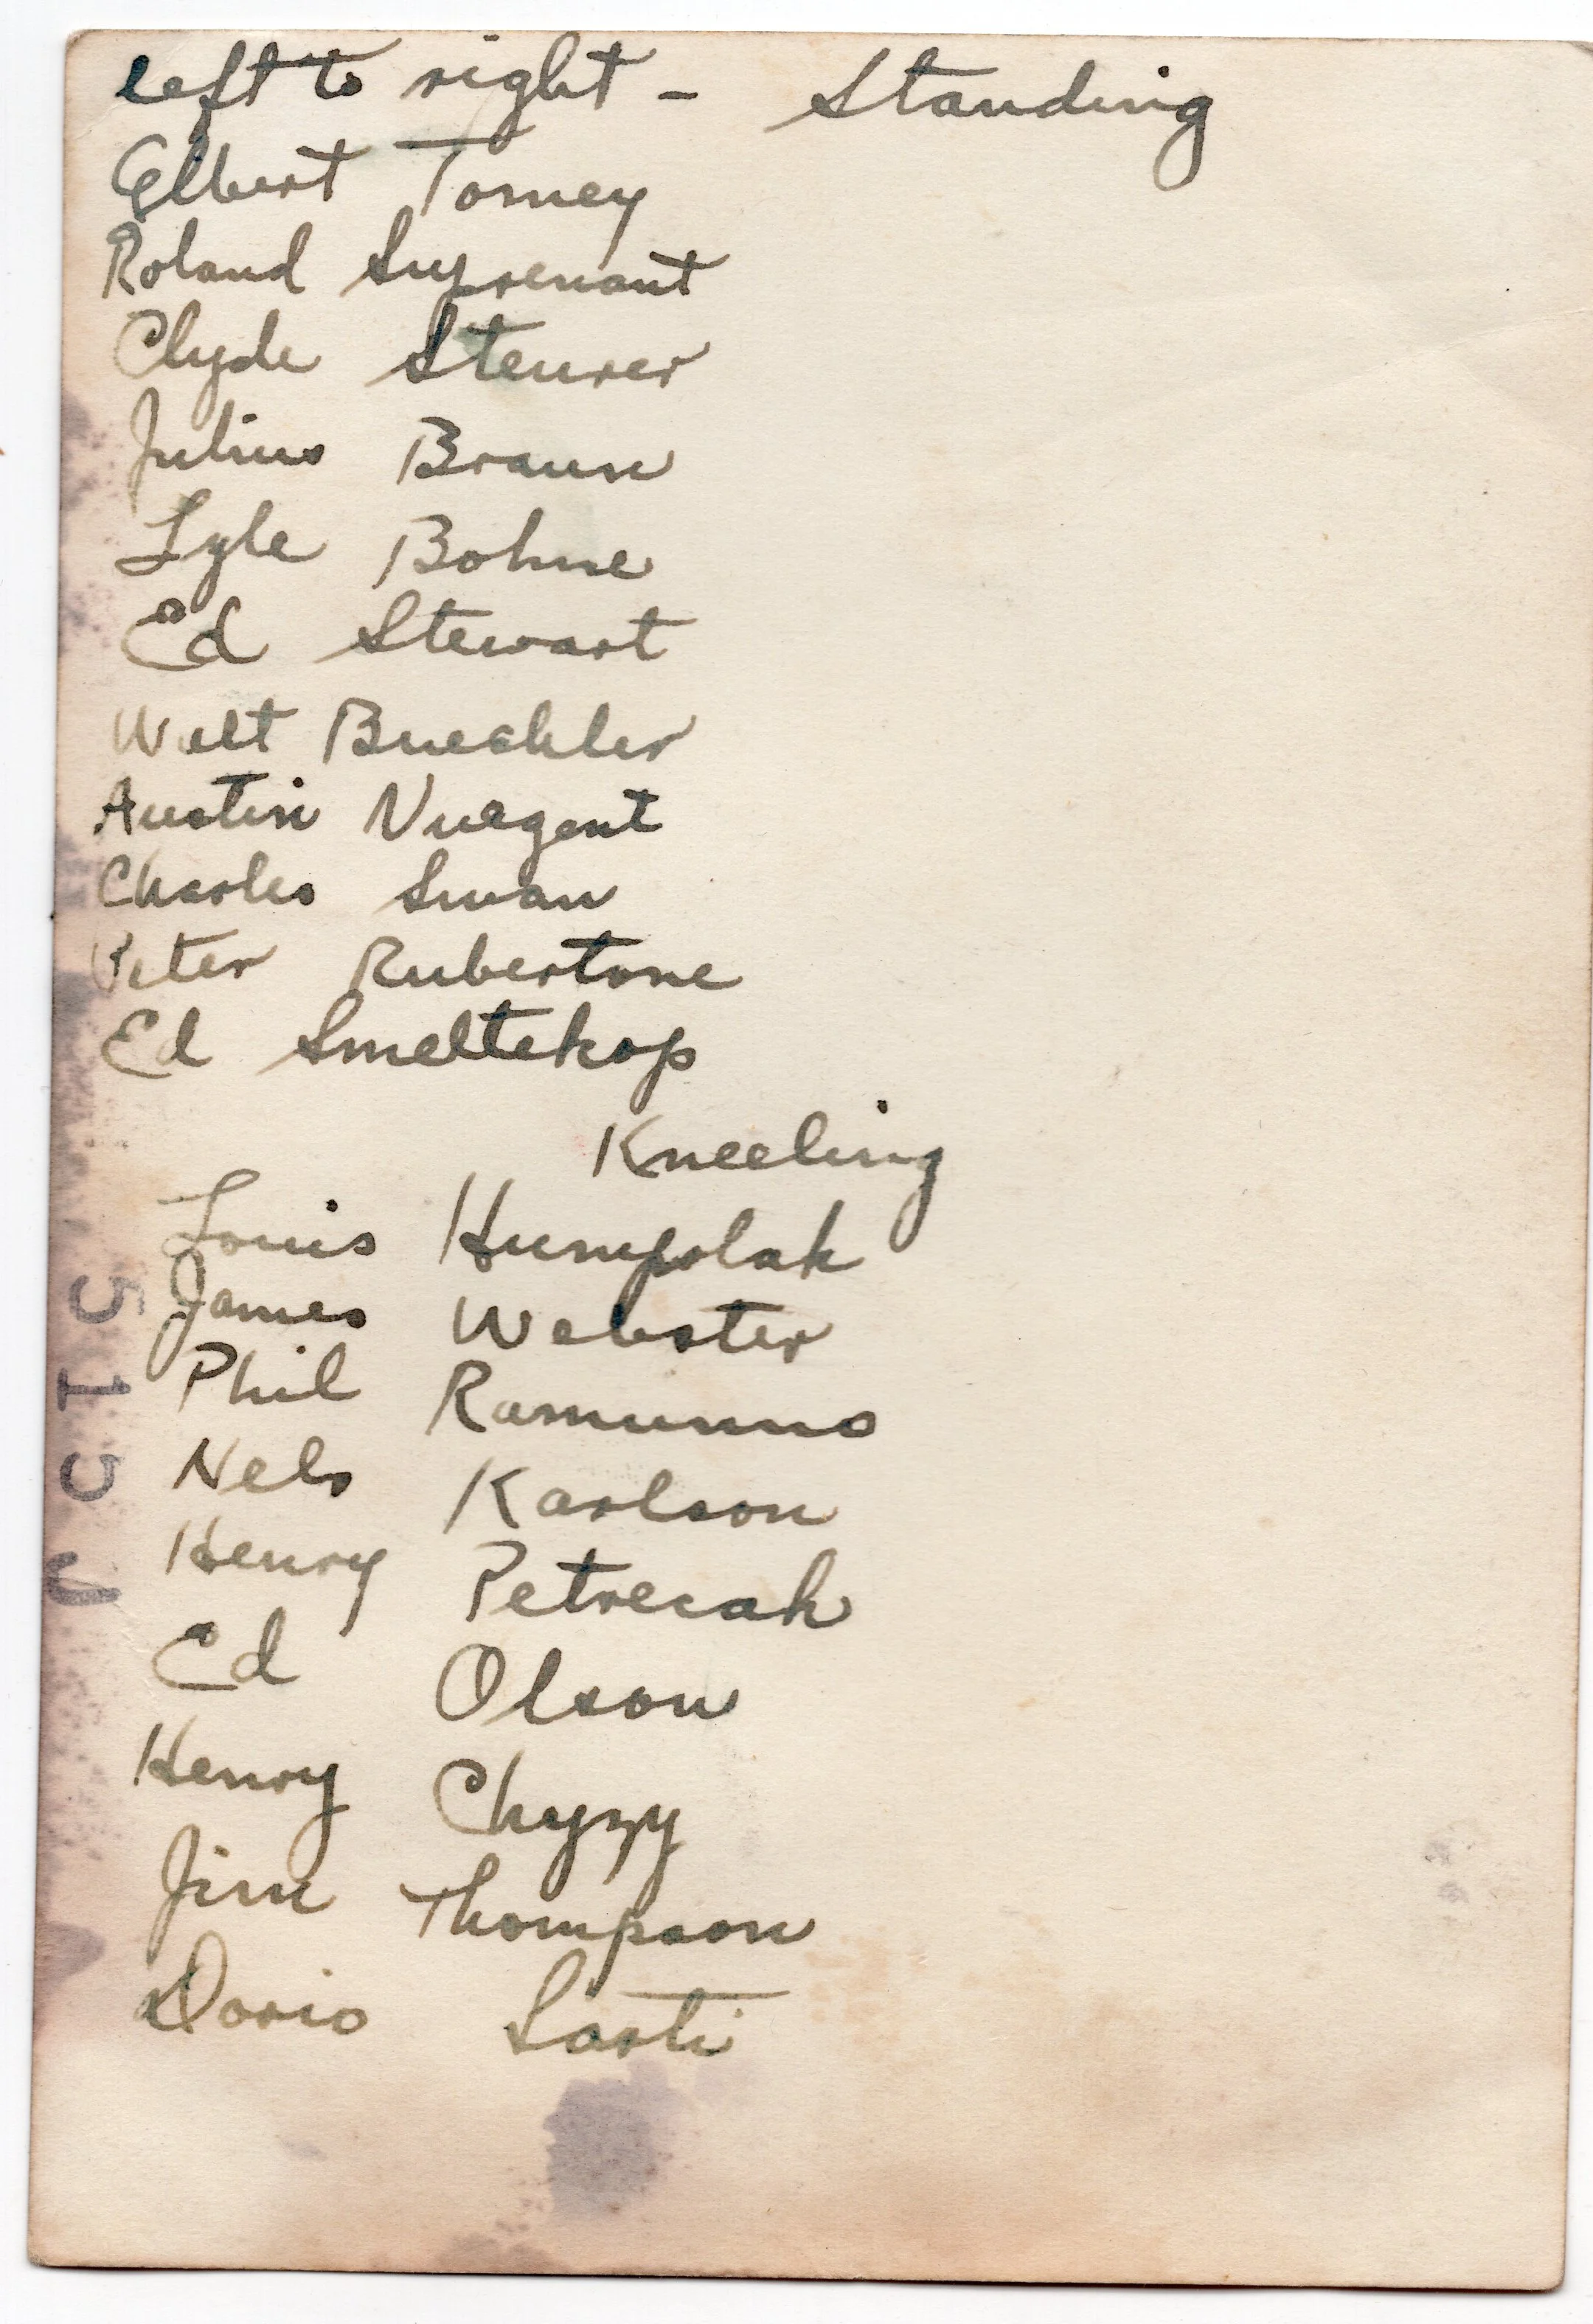 left to right - Standing
Elbert Torney
Roland Suprenant
Clyde Steurer
Julius Braun
Lyle Bohne
Ed Stewart
Walt Buechler
Austin Nuegent
Charles Swan
Peter Rubertone
Ed Smeltekop
Kneeling
Louis Humpolak
James Webster
Phil Ramunno
Nels Karlson
Henry Petrecak
Ed Olson
Henry Chyzy
Jim Thompson
Dorio Sarti